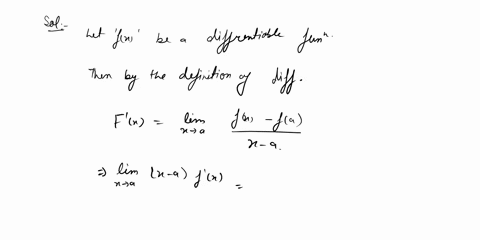 Sol:-
Let 'f(x)' be a differentiable funⁿ.
Then by the definition of diff.
F'(x) = lim x→a f(x) - f(a) / x-a.
⇒ lim x→a (x-a) f'(x) =